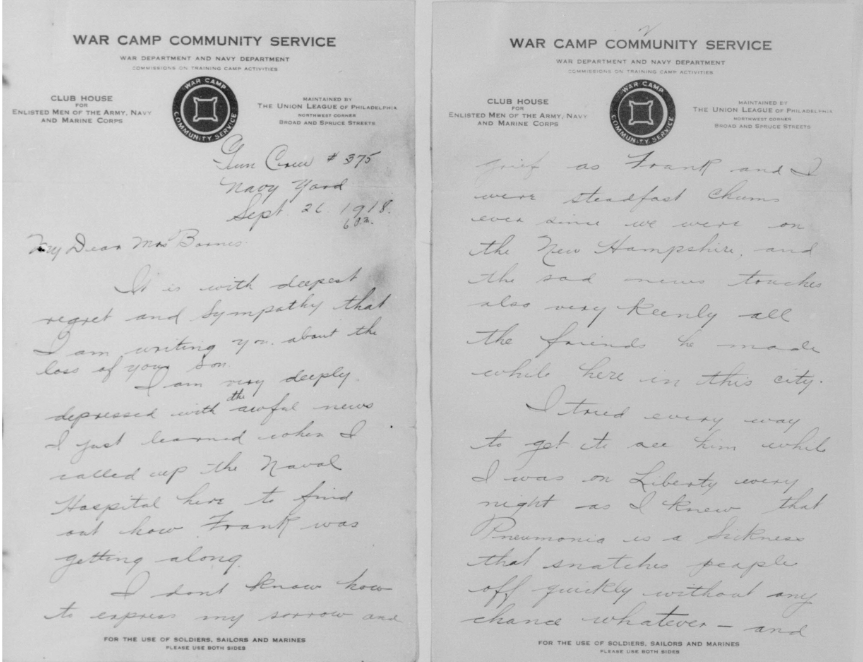 WAR CAMP COMMUNITY SERVICE
WAR DEPARTMENT AND NAVY DEPARTMENT
COMMISSIONS ON TRAINING CAMP ACTIVITIES
CLUB HOUSE
FOR
ENLISTED MEN OF THE ARMY, NAVY
AND MARINE CORPS
WAR CAMP
COMMUNITY SERVICE
MAINTAINED BY
THE UNION LEAGUE OF PHILADELPHIA
NORTHWEST CORNER
BROAD AND SPRUCE STREETS
Gun Crew # 375
Navy Yard
Sept 26 1918.
My Dear Mrs Barnes:
It is with deepest
regret and Sympathy that
I am writing you, about the
loss of your Son
I am very deeply
depressed with the awful news
I just learned when I
called up the Naval
Hospital here to find
out how Frank was
getting along.
I dont know how
to express my sorrow and
FOR THE USE OF SOLDIERS, SAILORS AND MARINES
PLEASE USE BOTH SIDES
WAR CAMP COMMUNITY SERVICE
WAR DEPARTMENT AND NAVY DEPARTMENT
COMMISSIONS ON TRAINING CAMP ACTIVITIES
CLUB HOUSE
FOR
ENLISTED MEN OF THE ARMY, NAVY
AND MARINE CORPS
WAR CAMP
COMMUNITY SERVICE
MAINTAINED BY
THE UNION LEAGUE OF PHILADELPHIA
NORTHWEST CORNER
BROAD AND SPRUCE STREETS
grief as Frank and I
were steadfast chums
ever since we were on
the New Hampshire, and
the sad news touches
also very keenly all
the friends he made
while here in this city.
I tried every way
to get to see him while
I was on Liberty every
night as I knew that
Pneumonia is a Sickness
that snatches people
off quickly without any
chance whatever - and
FOR THE USE OF SOLDIERS, SAILORS AND MARINES
PLEASE USE BOTH SIDES